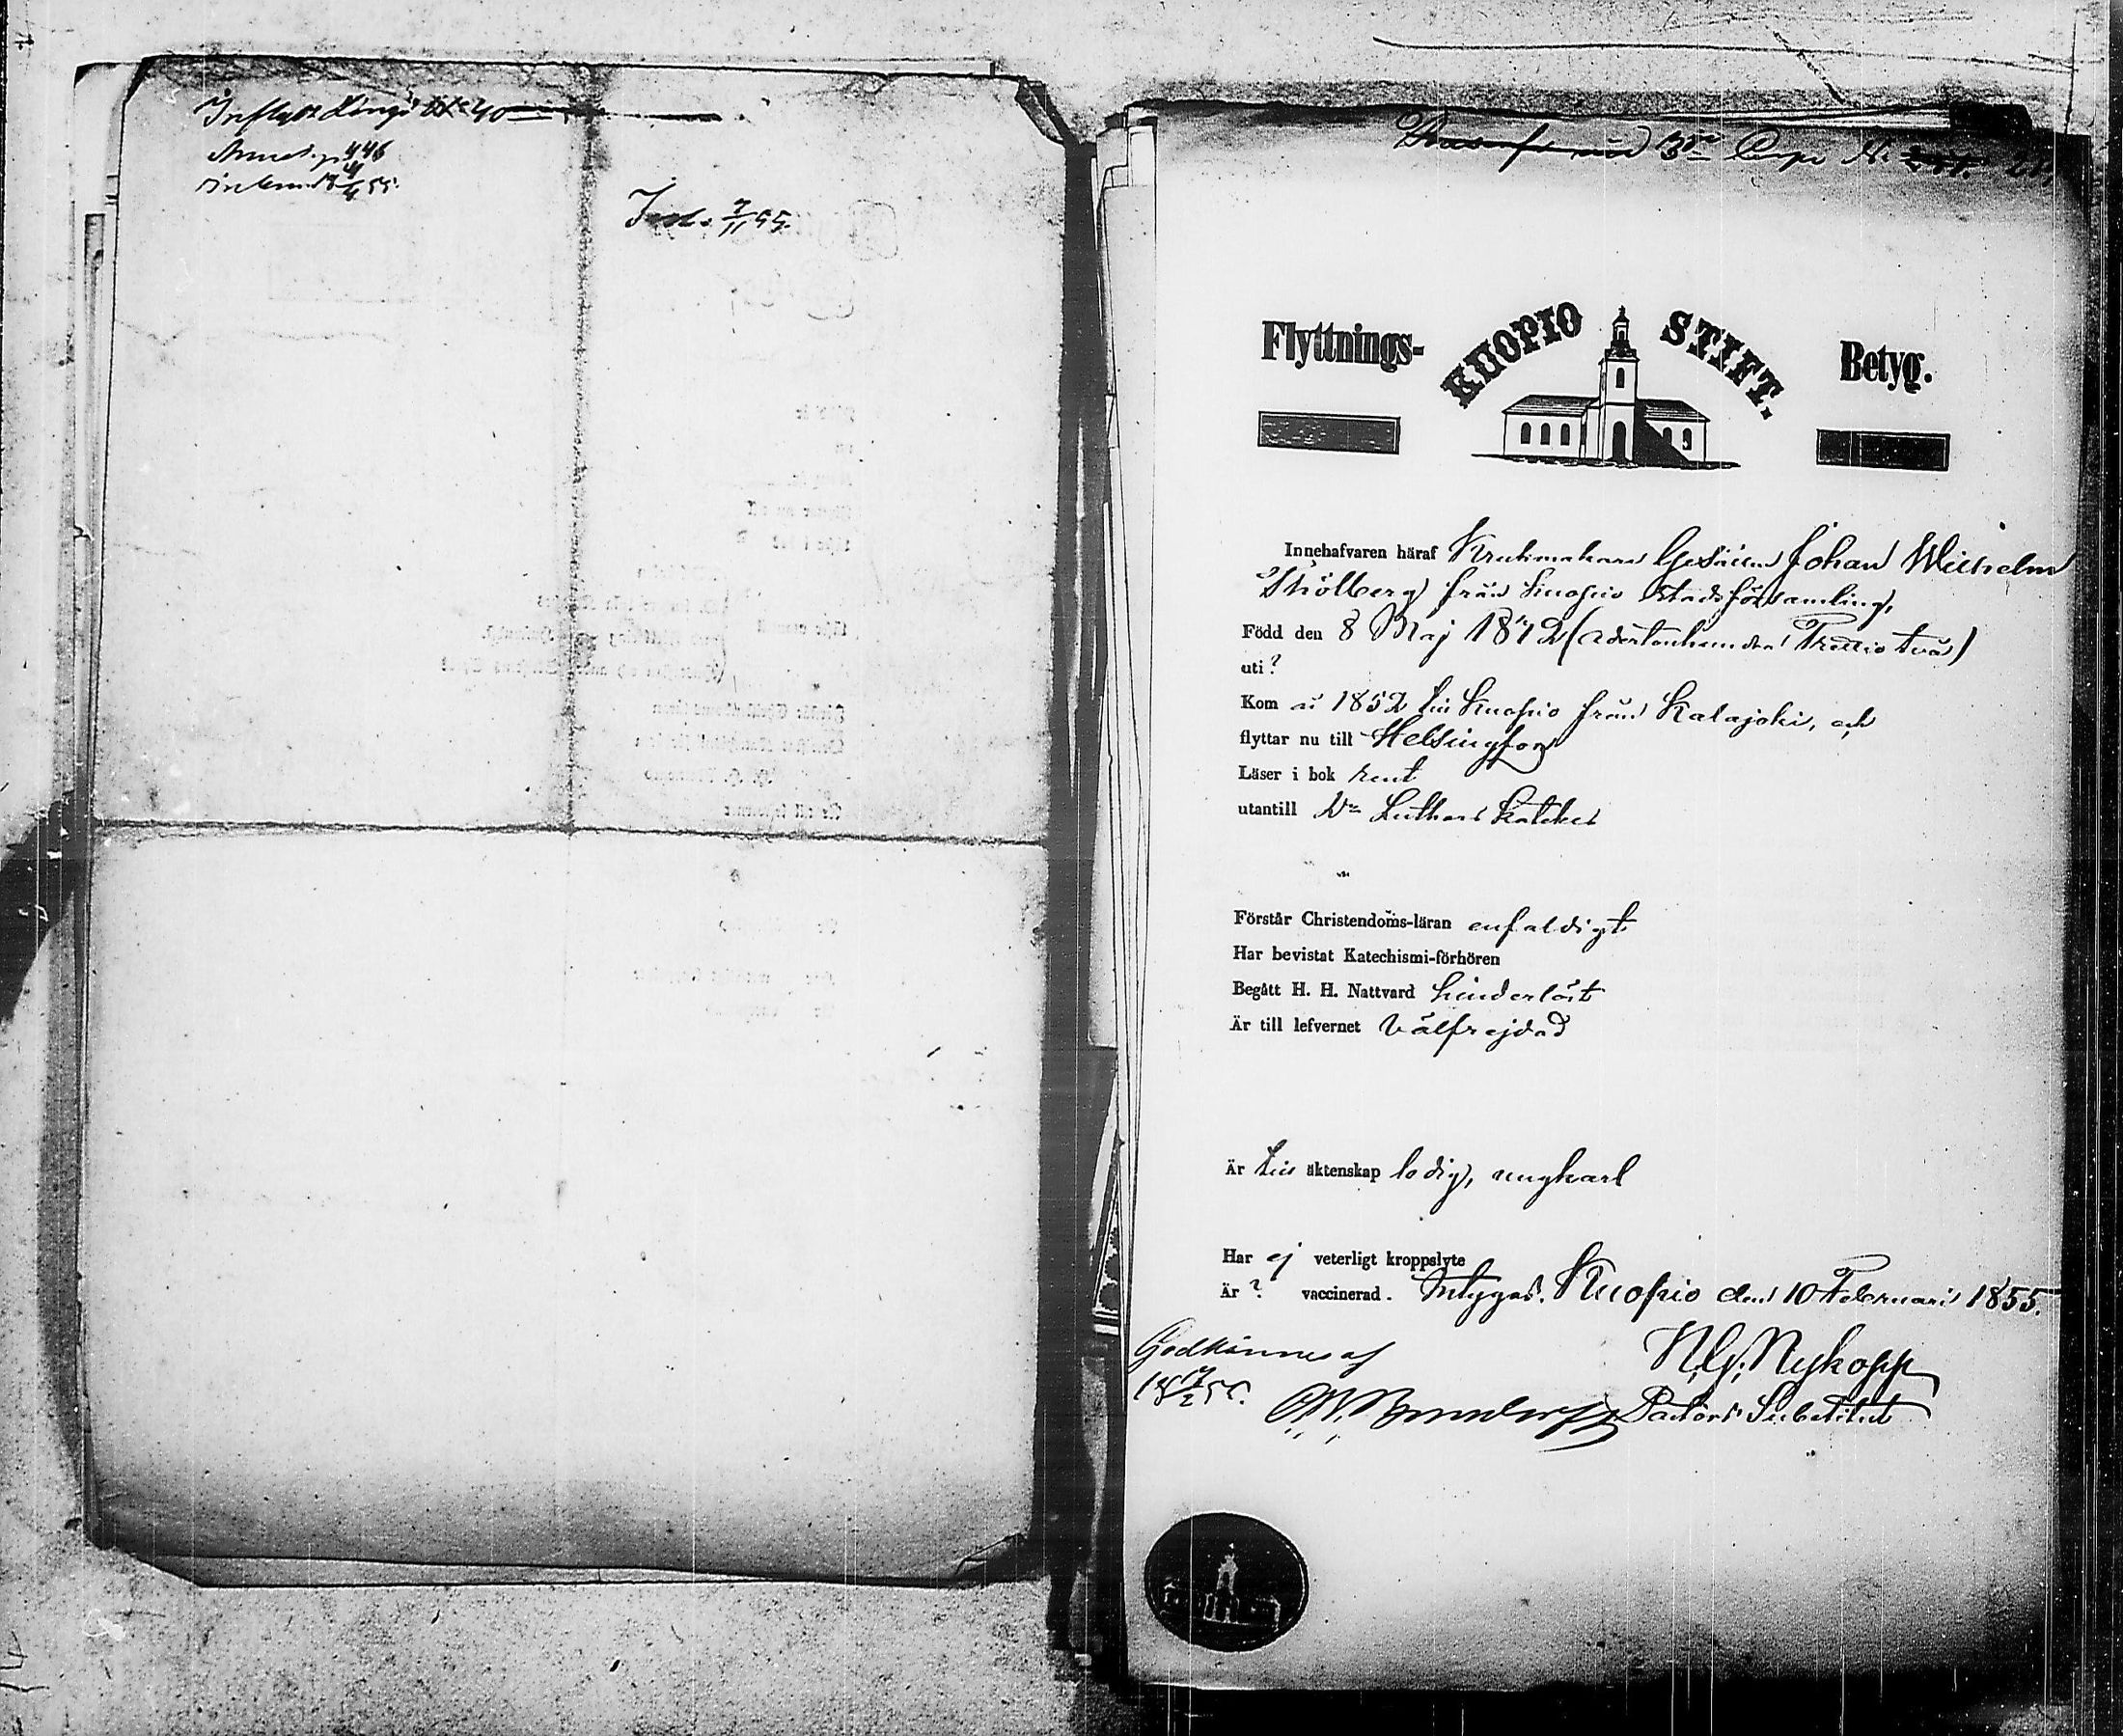 Inflytt. Längd № 40
Anmäl. p. 446
Inl. 7/11 55.
3ne Copa №
Flyttnings- KUOPIO STIFT. Betyg.
Innehafvaren häraf Krukmakare Gesällen Johan Wilhelm
Shölberg från Kuopio Stadsförsamling,
Född den 8 Maj 1832 (adertonhundra Trettio två)
uti ?
Kom år 1852 till Kuopio från Kalajoki, och
flyttar nu till Helsingfors
Läser i bok rent
utantill Dr Luthers Katekes
Förstår Christendoms-läran enfaldigt
Har bevistat Katechismi-förhören
Begått H. H. Nattvard hinderlöst
Är till lefvernet välfrejdad
Är till äktenskap ledig, ungkarl
Har ej veterligt kroppslyte
Är ? vaccinerad. Intygas. Kuopio den 10 Februari 1855.
Godkännes af N. G. Nykopp
Pastors Substitut